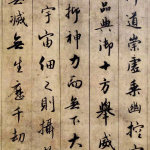 道崇虛乘幽控
品典御十方舉威
抑神力而無下大
宇宙細之則攝
滅無生歷千劫